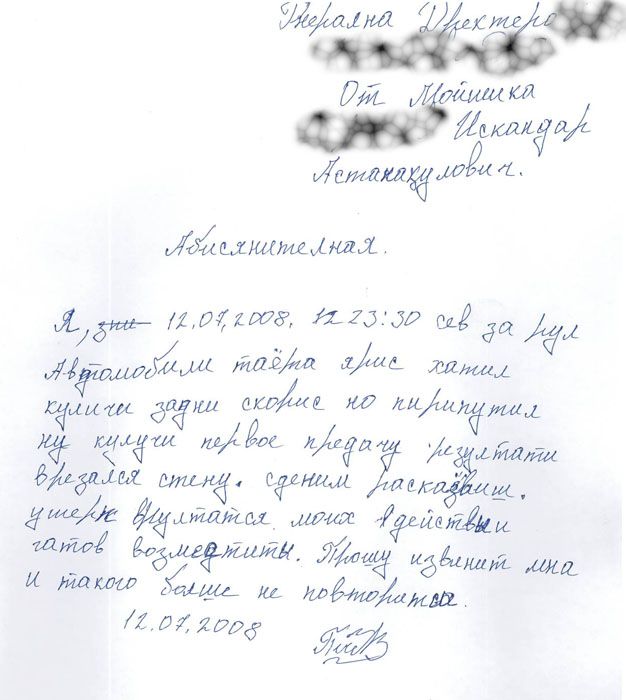 Генерална Директеро
От Мойшика
Искандар
Астанакулович.
Абиснянителная.
Я, 12.07.2008. 12 23:30 сев за рул
Автомобили таёта ярис хатил
куличи задни скорис но пирипутил
ну кулучи первое предачу результати
врезался стену. сденим раскаёваиш.
ушерп врултатся моих действыи
гатов возмедтиты. Прошу извенит мна
и такого болше не повторитса.
12.07.2008